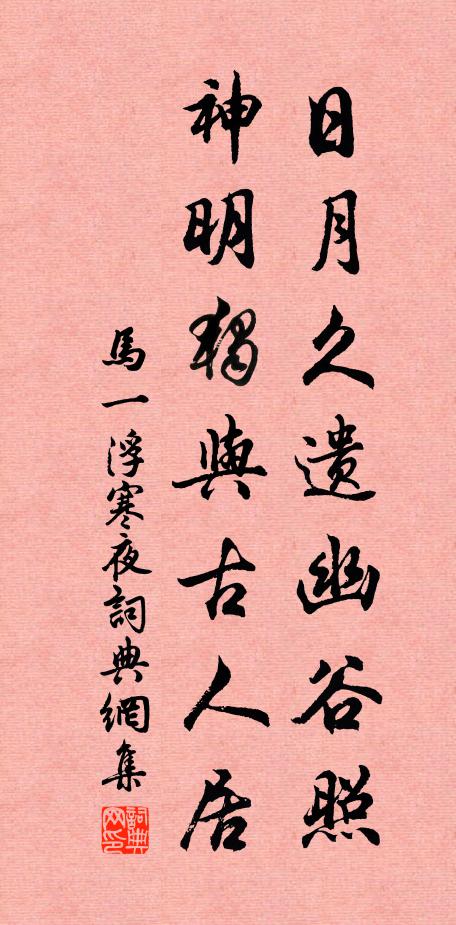 日月久遺幽谷照
神明獨與古人居
馬一浮寒夜詞典網集
詞典網印